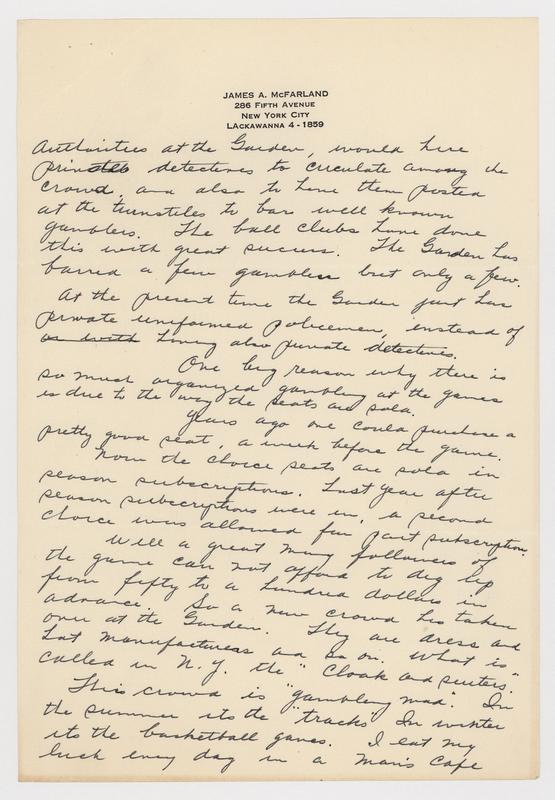 JAMES A. McFARLAND
286 FIFTH AVENUE
NEW YORK CITY
LACKAWANNA 4-1859
Authorities at the Garden, would hire
detectives to circulate among the
crowd, and also to have them posted
at the turnstiles to bar well known
gamblers. The ball clubs have done
this with great success. The Garden has
barred a few gamblers but only a few.
At the present time the Garden just has
private uniformed policemen, instead of
or with having also private detectives.
One big reason why there is
so much organized gambling at the games
is due to the way the seats are sold.
Years ago one could purchase a
pretty good seat, a week before the game.
Now the choice seats are sold in
season subscriptions. Last year after
season subscriptions were in, a second
choice was allowed for part subscription.
Well a great many followers of
the game can not afford to dig up
from fifty to a hundred dollars in
advance. So a new crowd has taken
over at the Garden. They are dress and
hat manufacturers and so on. What is
called in N.Y. the "Cloak and suiters."
This crowd is "gambling mad". In
the summer its the "tracks" In winter
its the basketball games. I eat my
luch every day in a man's cafe